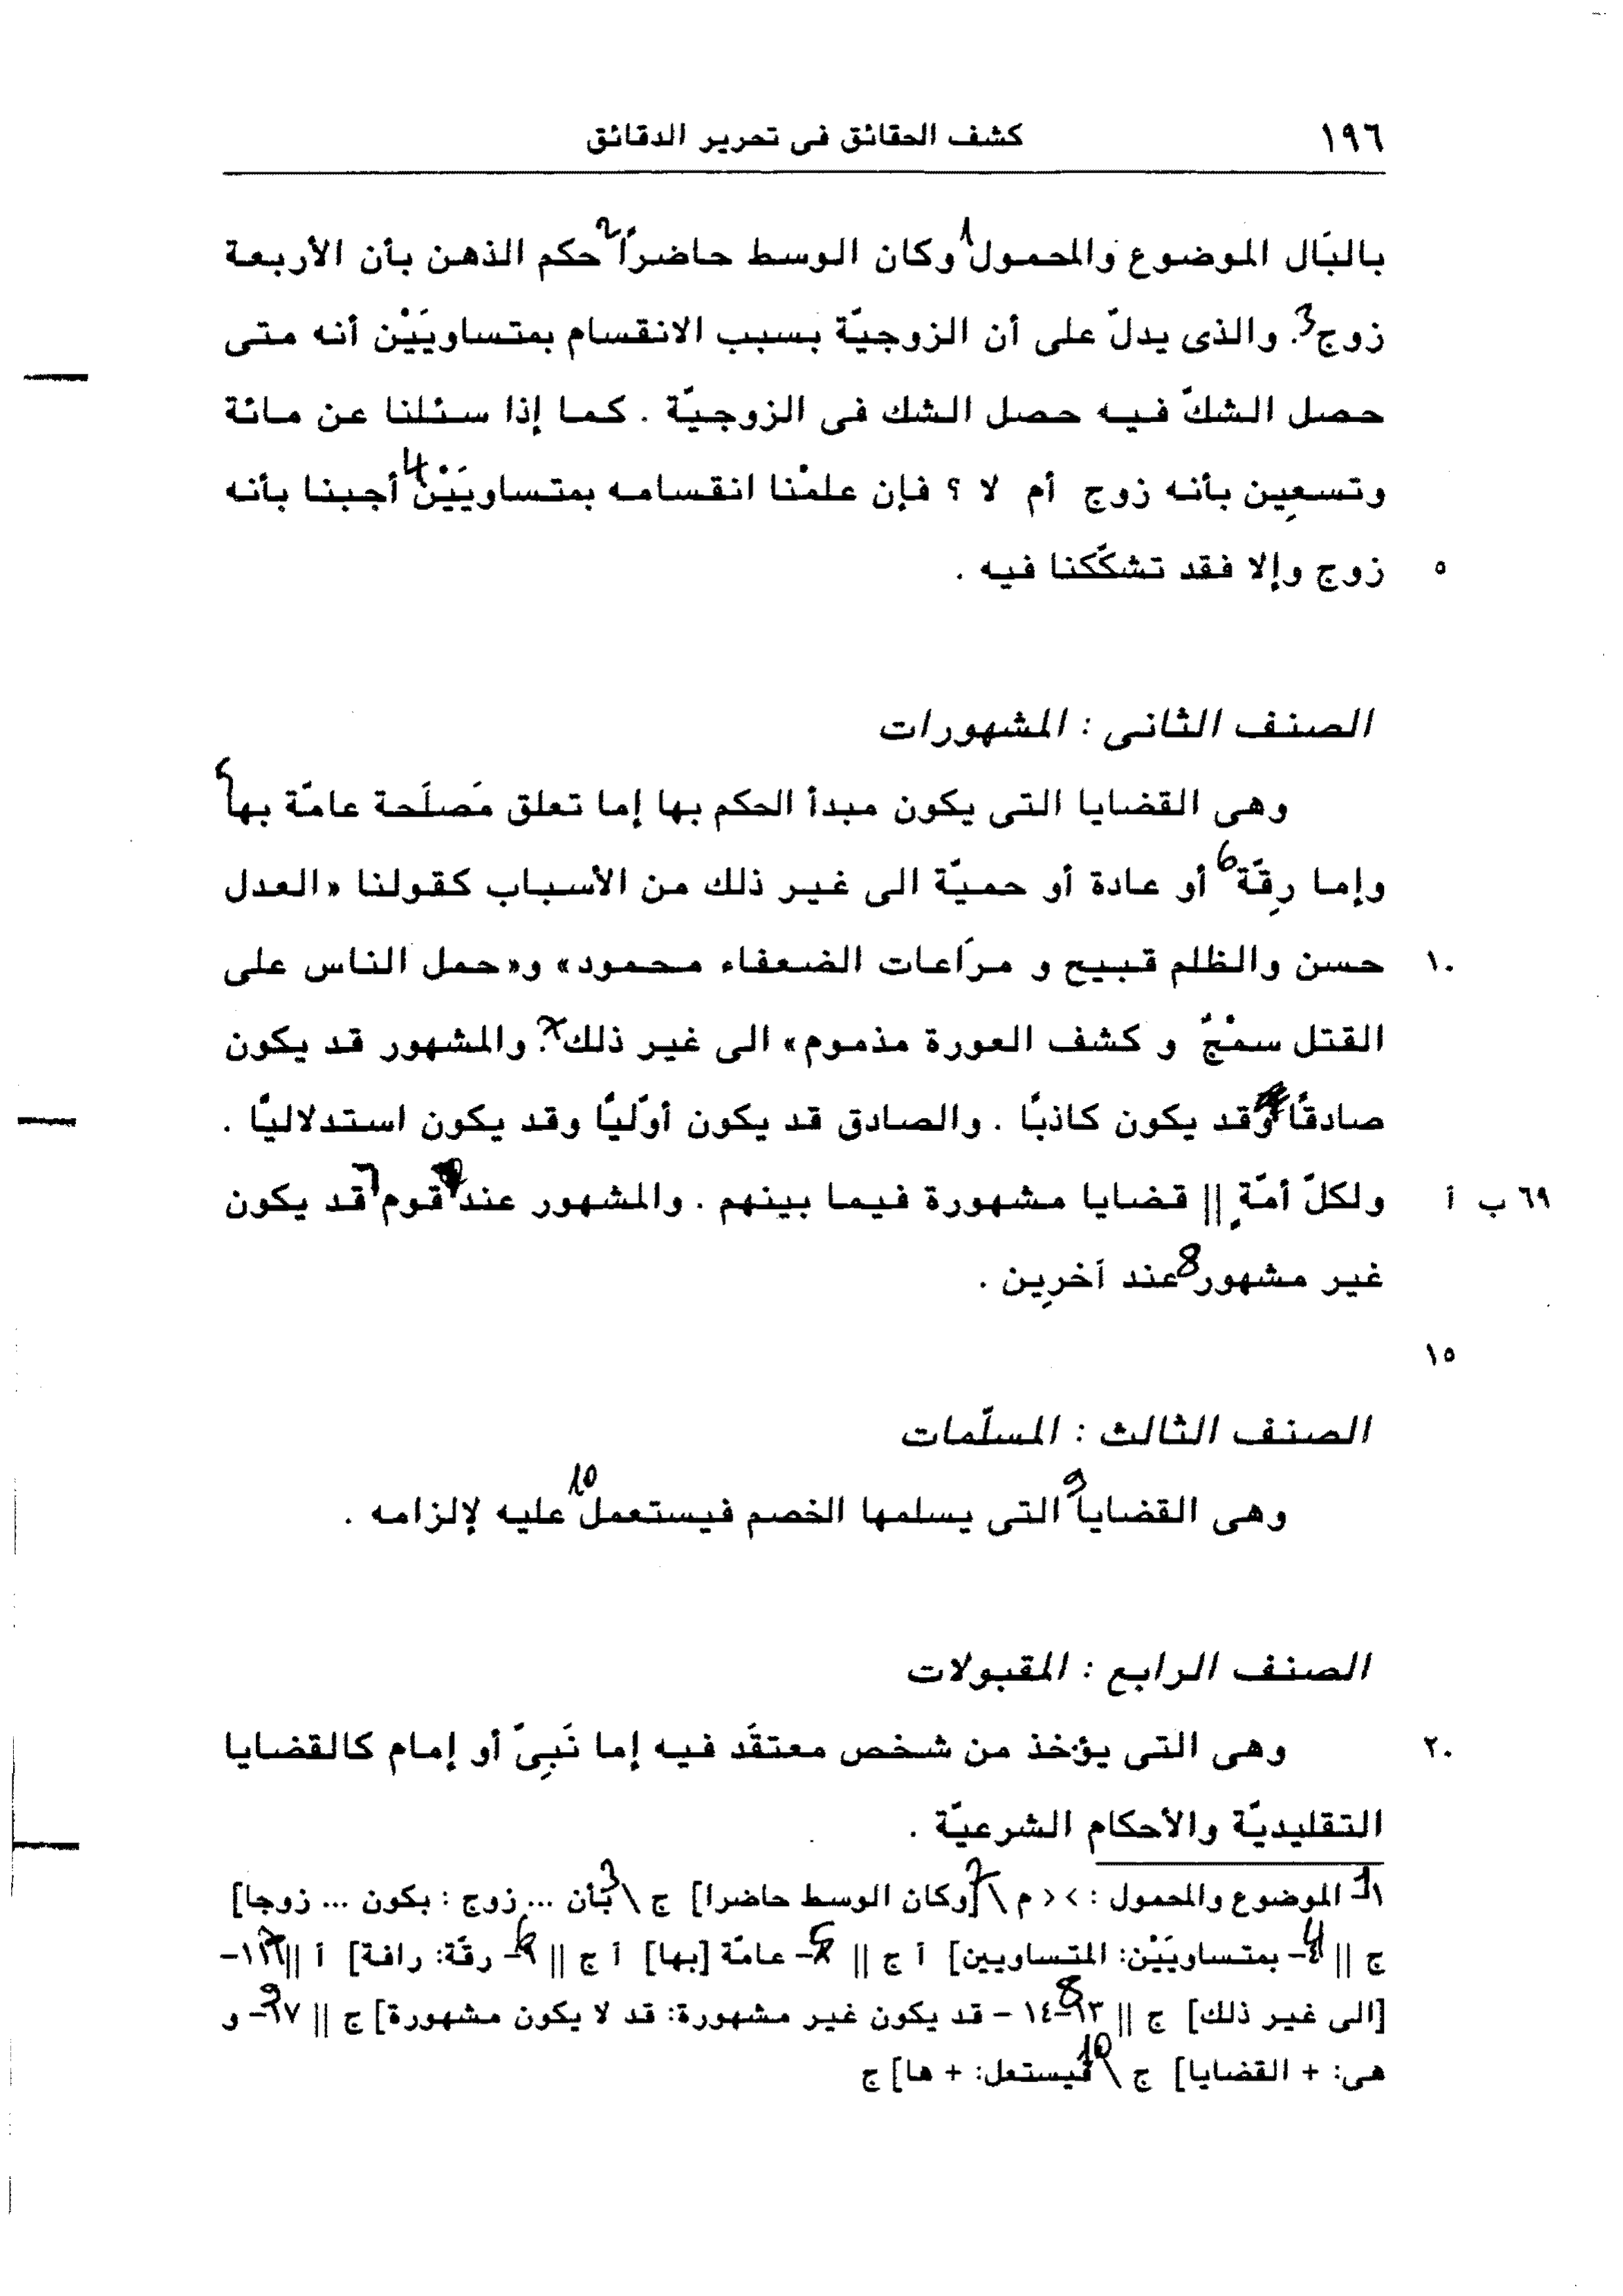 ١٩٦ كشف الحقائق فى تحرير الدقائق
بالبَال الموضوع والمحمول1 وكان الوسط حاضرًا2 حكم الذهن بأن الأربعة
زوج3. والذى يدلّ على أن الزوجيّة بسبب الانقسام بمتساويَيْن أنه متى
حصل الشكّ فيه حصل الشك فى الزوجيّة . كما إذا سئلنا عن مائة
وتسعِين بأنه زوج أم لا ؟ فإن علمْنا انقسامه بمتساويَيْن4 أجبنا بأنه
٥ زوج وإلا فقد تشكّكنا فيه .
الصنف الثانى : المشهورات
وهى القضايا التى يكون مبدأ الحكم بها إما تعلق مَصلَحة عامّة بها5
وإما رِقّة6 أو عادة أو حميّة الى غير ذلك من الأسباب كقولنا «العدل
١٠ حسن والظلم قبيح و مرَاعات الضعفاء محمود» و«حمل الناس على
القتل سمْجٌ و كشف العورة مذموم» الى غير ذلك7. والمشهور قد يكون
صادقًا وقد يكون كاذبًا . والصادق قد يكون أوّليًّا وقد يكون استدلاليًّا .
٦٩ ب أ ولكلّ أمّةٍ || قضايا مشهورة فيما بينهم . والمشهور عند قوم قد يكون
غير مشهور8 عند آخرِين .
١٥
الصنف الثالث : المسلّمات
وهى القضايا9 التى يسلمها الخصم فيستعمل10 عليه لإلزامه .
الصنف الرابع : المقبولات
٢٠ وهى التى يؤخذ من شخص معتقَد فيه إما نَبِىّ أو إمام كالقضايا
التقليديّة والأحكام الشرعيّة .
1- الموضوع والمحمول : > < م \ 2 [وكان الوسط حاضرا] ج \ 3 بأن ... زوج : بكون ... زوجا]
ج || 4- بمتساويَيْن: المتساويين] أ ج || 5- عامّة [بها] أ ج || 6- رقّة: رافة] أ || 7-
[الى غير ذلك] ج || 8 ١٣-١٤ - قد يكون غير مشهورة: قد لا يكون مشهورة] ج || 9- و
هى: + القضايا] ج \ 10 فيستعل: + ها] ج